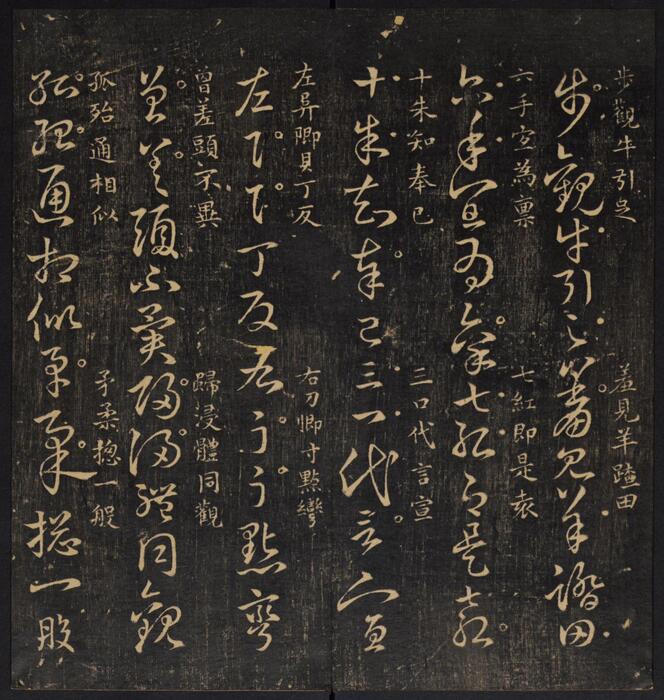 步觀牛引足 羞見羊踏田
步觀牛引足羞見羊踏田
六手宜為稟 七紅即是袁
六手宜為稟七紅即是袁
十朱知奉已 三口代言宣
十朱知奉已三口代言宣
左卿貝丁反 右刀卿寸點彎
左丁反右點彎
曾差頭不異 歸浸體同觀
曾差頭不異歸浸體同觀
孤殆通相似 矛柔揔一般
孤殆通相似矛柔揔一般